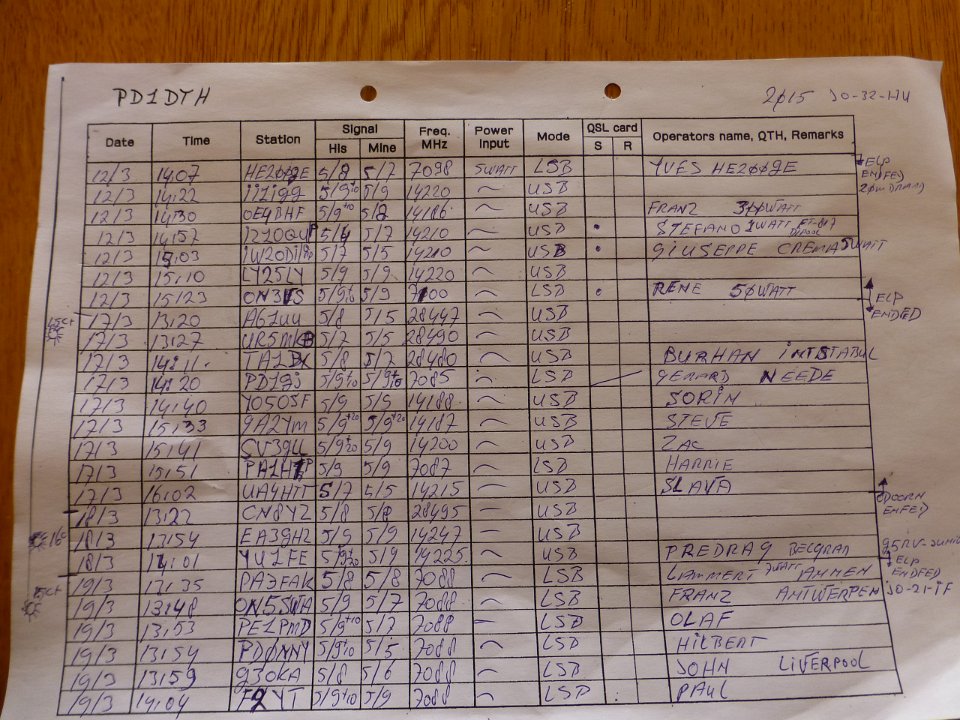 PD1DTH 2015 JO-32-HU
Date Time Station Signal His Mine Freq. MHz Power Input Mode QSL card S R Operators name, QTH, Remarks
12/3 14:07 HE2ØØGE 5/8 5/7 7098 5WATT LSB YVES HE2ØØGE
12/3 14:22 5/9+10 5/9 14220 ~ USB
12/3 14:30 OE4BHF 5/9+10 14186 ~ USB FRANZ
12/3 14:57 5/4 14210 ~ USB • STEFANO 1WATT
12/3 15:03 5/7 5/5 14210 ~ USB • GIUSEPPE CREMA 5WATT
12/3 15:10 LY25LY 5/9 5/9 14220 ~ USB
12/3 15:23 5/9 7100 ~ LSB • RENE 5ØWATT
17/3 13:20 A61UU 5/8 5/5 28447 ~ USB
17/3 13:27 5/7 5/5 28490 ~ USB
17/3 14:11 5/8 5/7 28480 ~ USB BURHAN
17/3 14:20 PD1GJ 5/9+10 5/9+10 7085 ~ LSB GERARD NEEDE
17/3 14:40 YO5OSF 5/9 5/9 14188 ~ USB SORIN
17/3 15:33 9A2YM 5/9+20 5/9+20 14187 ~ USB STEVE
17/3 15:41 SV3GLL 5/9+20 5/9 14200 ~ USB ZAC
17/3 15:51 5/9 5/9 7087 ~ LSB HARRIE
17/3 16:02 UA4HTT 5/7 5/5 14215 ~ USB SLAVA
18/3 13:22 CN8YZ 5/8 5/8 28495 ~ USB
18/3 13:54 EA3GHZ 5/9 5/9 14247 ~ USB
18/3 14:01 YU1FE 5/9+20 5/9 14225 ~ USB PREDRAG BELGRAD
19/3 13:35 PA3FAK 5/8 5/8 7088 ~ LSB LAMMERT
19/3 13:48 ON5SWA 5/9 5/7 7088 ~ LSB FRANZ ANTWERPEN
19/3 13:53 PE1PMD 5/9+10 5/7 7088 ~ LSB OLAF
19/3 13:54 PDØNNY 5/9+10 5/5 7088 ~ LSB HILBERT
19/3 13:59 G3OKA 5/8 5/6 7088 ~ LSB JOHN LIVERPOOL
19/3 14:04 5/9+10 5/9 7088 ~ LSB PAUL
ELP
ENDFED
ELP
ENDFED
DOORN
ENFED
ELP
ENDFED
JO-21-IF